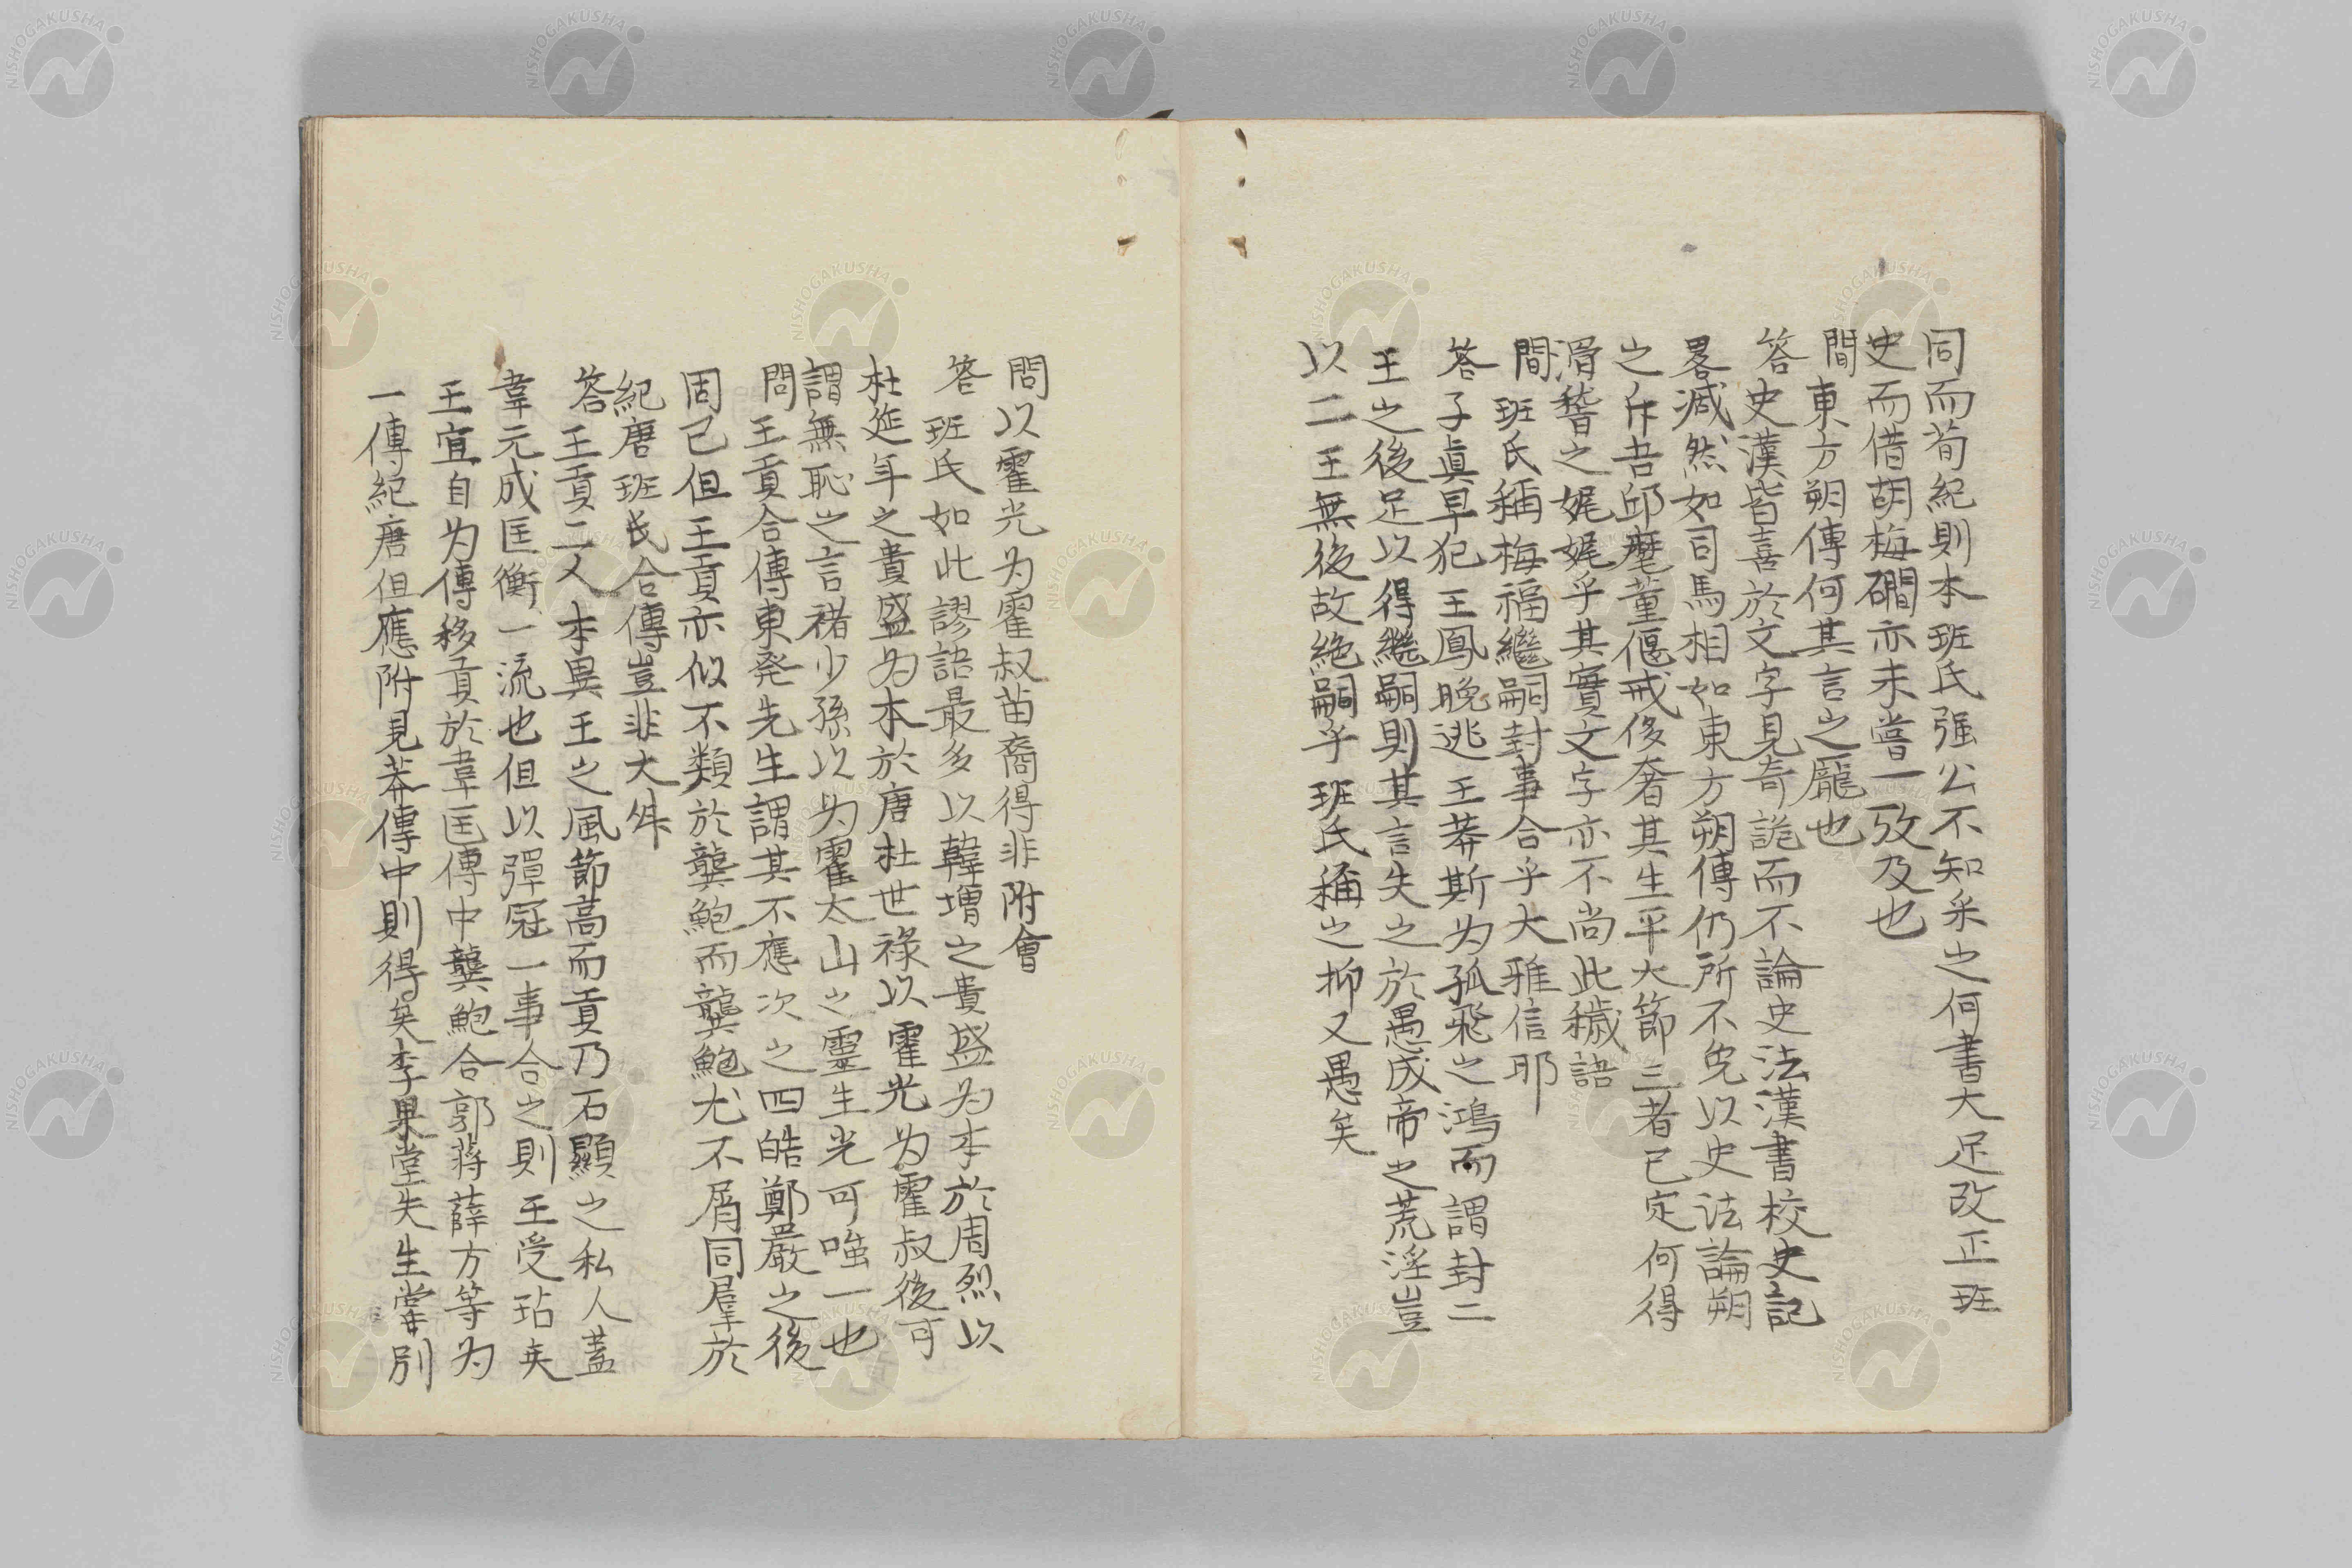 同而荀紀則本班氏强公不知采之何書大足改正班
史而借胡梅磵亦未嘗一攷及也
間東方朔傳何其言之龐也
答史漢皆喜於文字見奇詭而不論史法漢書校史記
畧減然如司馬相如東方朔傳仍所不免以史法論朔
之斥吾邱董偃戒侈奢其生平大節三者已定何得
滑稽之娓娓乎其實文字亦不尚此穢語
間班氏稱梅福繼嗣封事合乎大雅信耶
答子眞早犯王鳳晚逃王莽斯为孤飛之鴻而謂封二
王之後足以得繼嗣則其言失之於愚成帝之荒淫豈
以二王無後故絶嗣乎班氏稱之抑又愚矣
問以霍光为霍叔苗裔得非附會
答班氏如此謬語最多以韓增之貴盛为本於周烈以
杜延年之貴盛为本於唐杜世祿以霍光为霍叔後可
謂無恥之言褚少孫以为霍太山之靈生光可嗤一也
問王貢合傳東発先生謂其不應次之四皓鄭嚴之後
固已但王貢亦似不類於龔鮑而龔鮑尤不屑同羣於
紀唐班氏合傳豈非大舛
答王貢二人本異王之風節高而貢乃石顯之私人蓋
韋元成匡衡一流也但以彈冠一事合之則王受玷矣
王宜自为傳移貢於韋匡傳中龔鮑合郭蔣薛方等为
一傳紀唐但應附見莽傳中則得矣李果堂先生嘗別
NISHOGAKUSHA